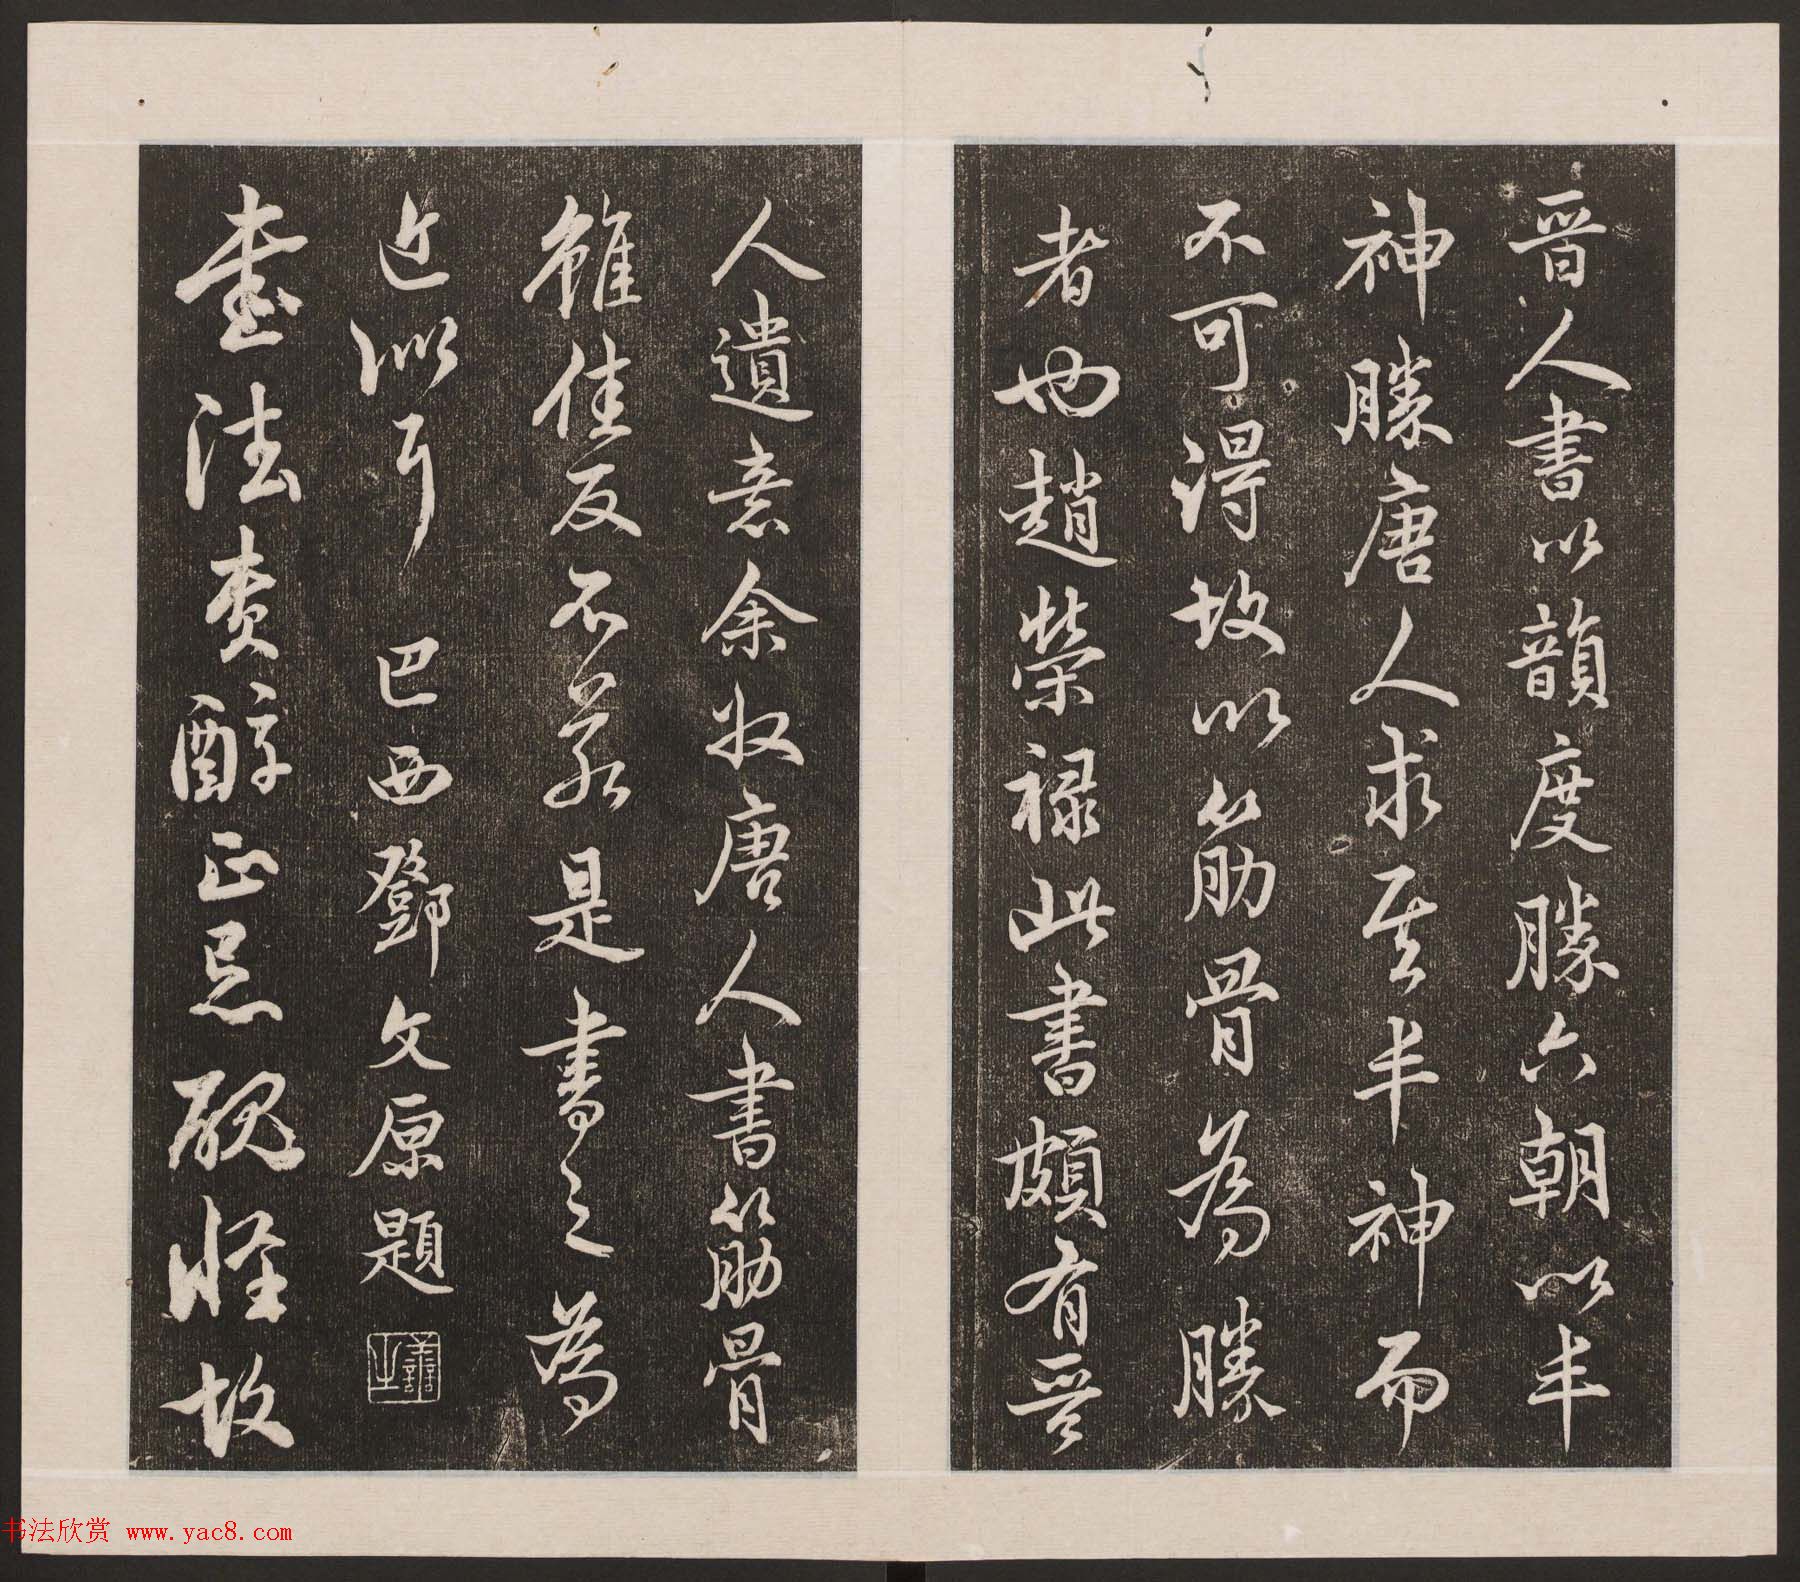 晉人書以韻度勝六朝以丰
神勝唐人求其丰神而
不可得故以筋骨為勝
者也趙榮祿此書頗有晉
人遺意余收唐人書筋骨
雖佳反不若是書之為
近似耳 巴西鄧文原題
書法貴醇正忌醜怪故
书法欣赏 www.yac8.com